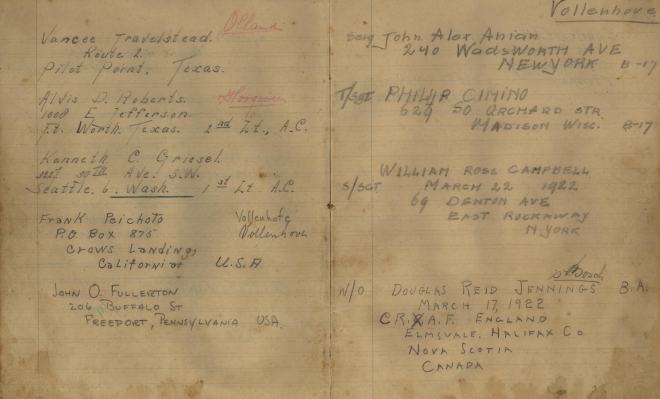 Olland
Vancee Travelstead.
Route 2.
Pilot Point, Texas.
Alvis D. Roberts.
1008 E Jefferson.
Ft. Worth. Texas. 2nd Lt., A.C.
Kenneth C. Griesel.
Ave. S.W.
Seattle. 6. Wash. 1st Lt A.C.
Frank Peichoto Vollenhofe
P.O. Box 875 Vollenhove
Crows Landing,
California U.S.A
John O. Fullerton
206 Buffalo St
Freeport, Pennsylvania USA.
Vollenhove
Serg John Alex Anian
240 Wadsworth Ave
New York B-17
T/Sgt Philip Cimino
629 So. Orchard Str
Madison Wisc. B-17
William Ross Campbell
S/Sgt March 22 1922
69 Denton Ave
East Rockaway
N.York
W/O Douglas Reid Jennings B.A.
March 17, 1922
R.C.A.F. England
Elmsvale, Halifax Co
Nova Scotia
Canada